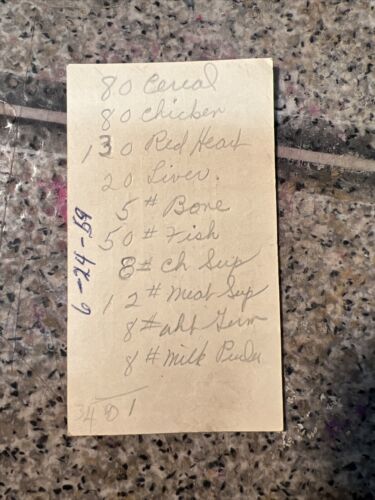 80 Cereal
80 Chicken
130 Red Heart
20 Liver.
5 # Bone
50 # Fish
8 # Ch Sup
12 # Meat Sup
8 # Wht Germ
8 # Milk Powder
34 1
6-24-59